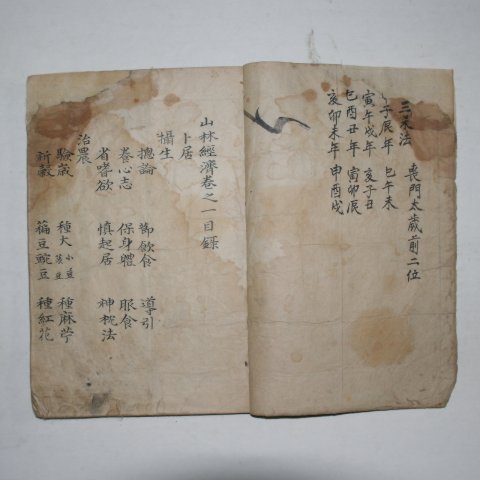 三殺法　喪門太歲前二位
子辰年　巳午未
寅午戌年　亥子丑
巳酉丑年　寅卯辰
亥卯未年　申酉戌
山林經濟卷之一目錄
卜居
攝生
摠論　節飮食　導引
養心志　保身軆　服食
省嗜欲　愼起居　神枕法
治農
驗歲　種大小豆　種麻苧
祈穀　藊豆豌豆　種紅花